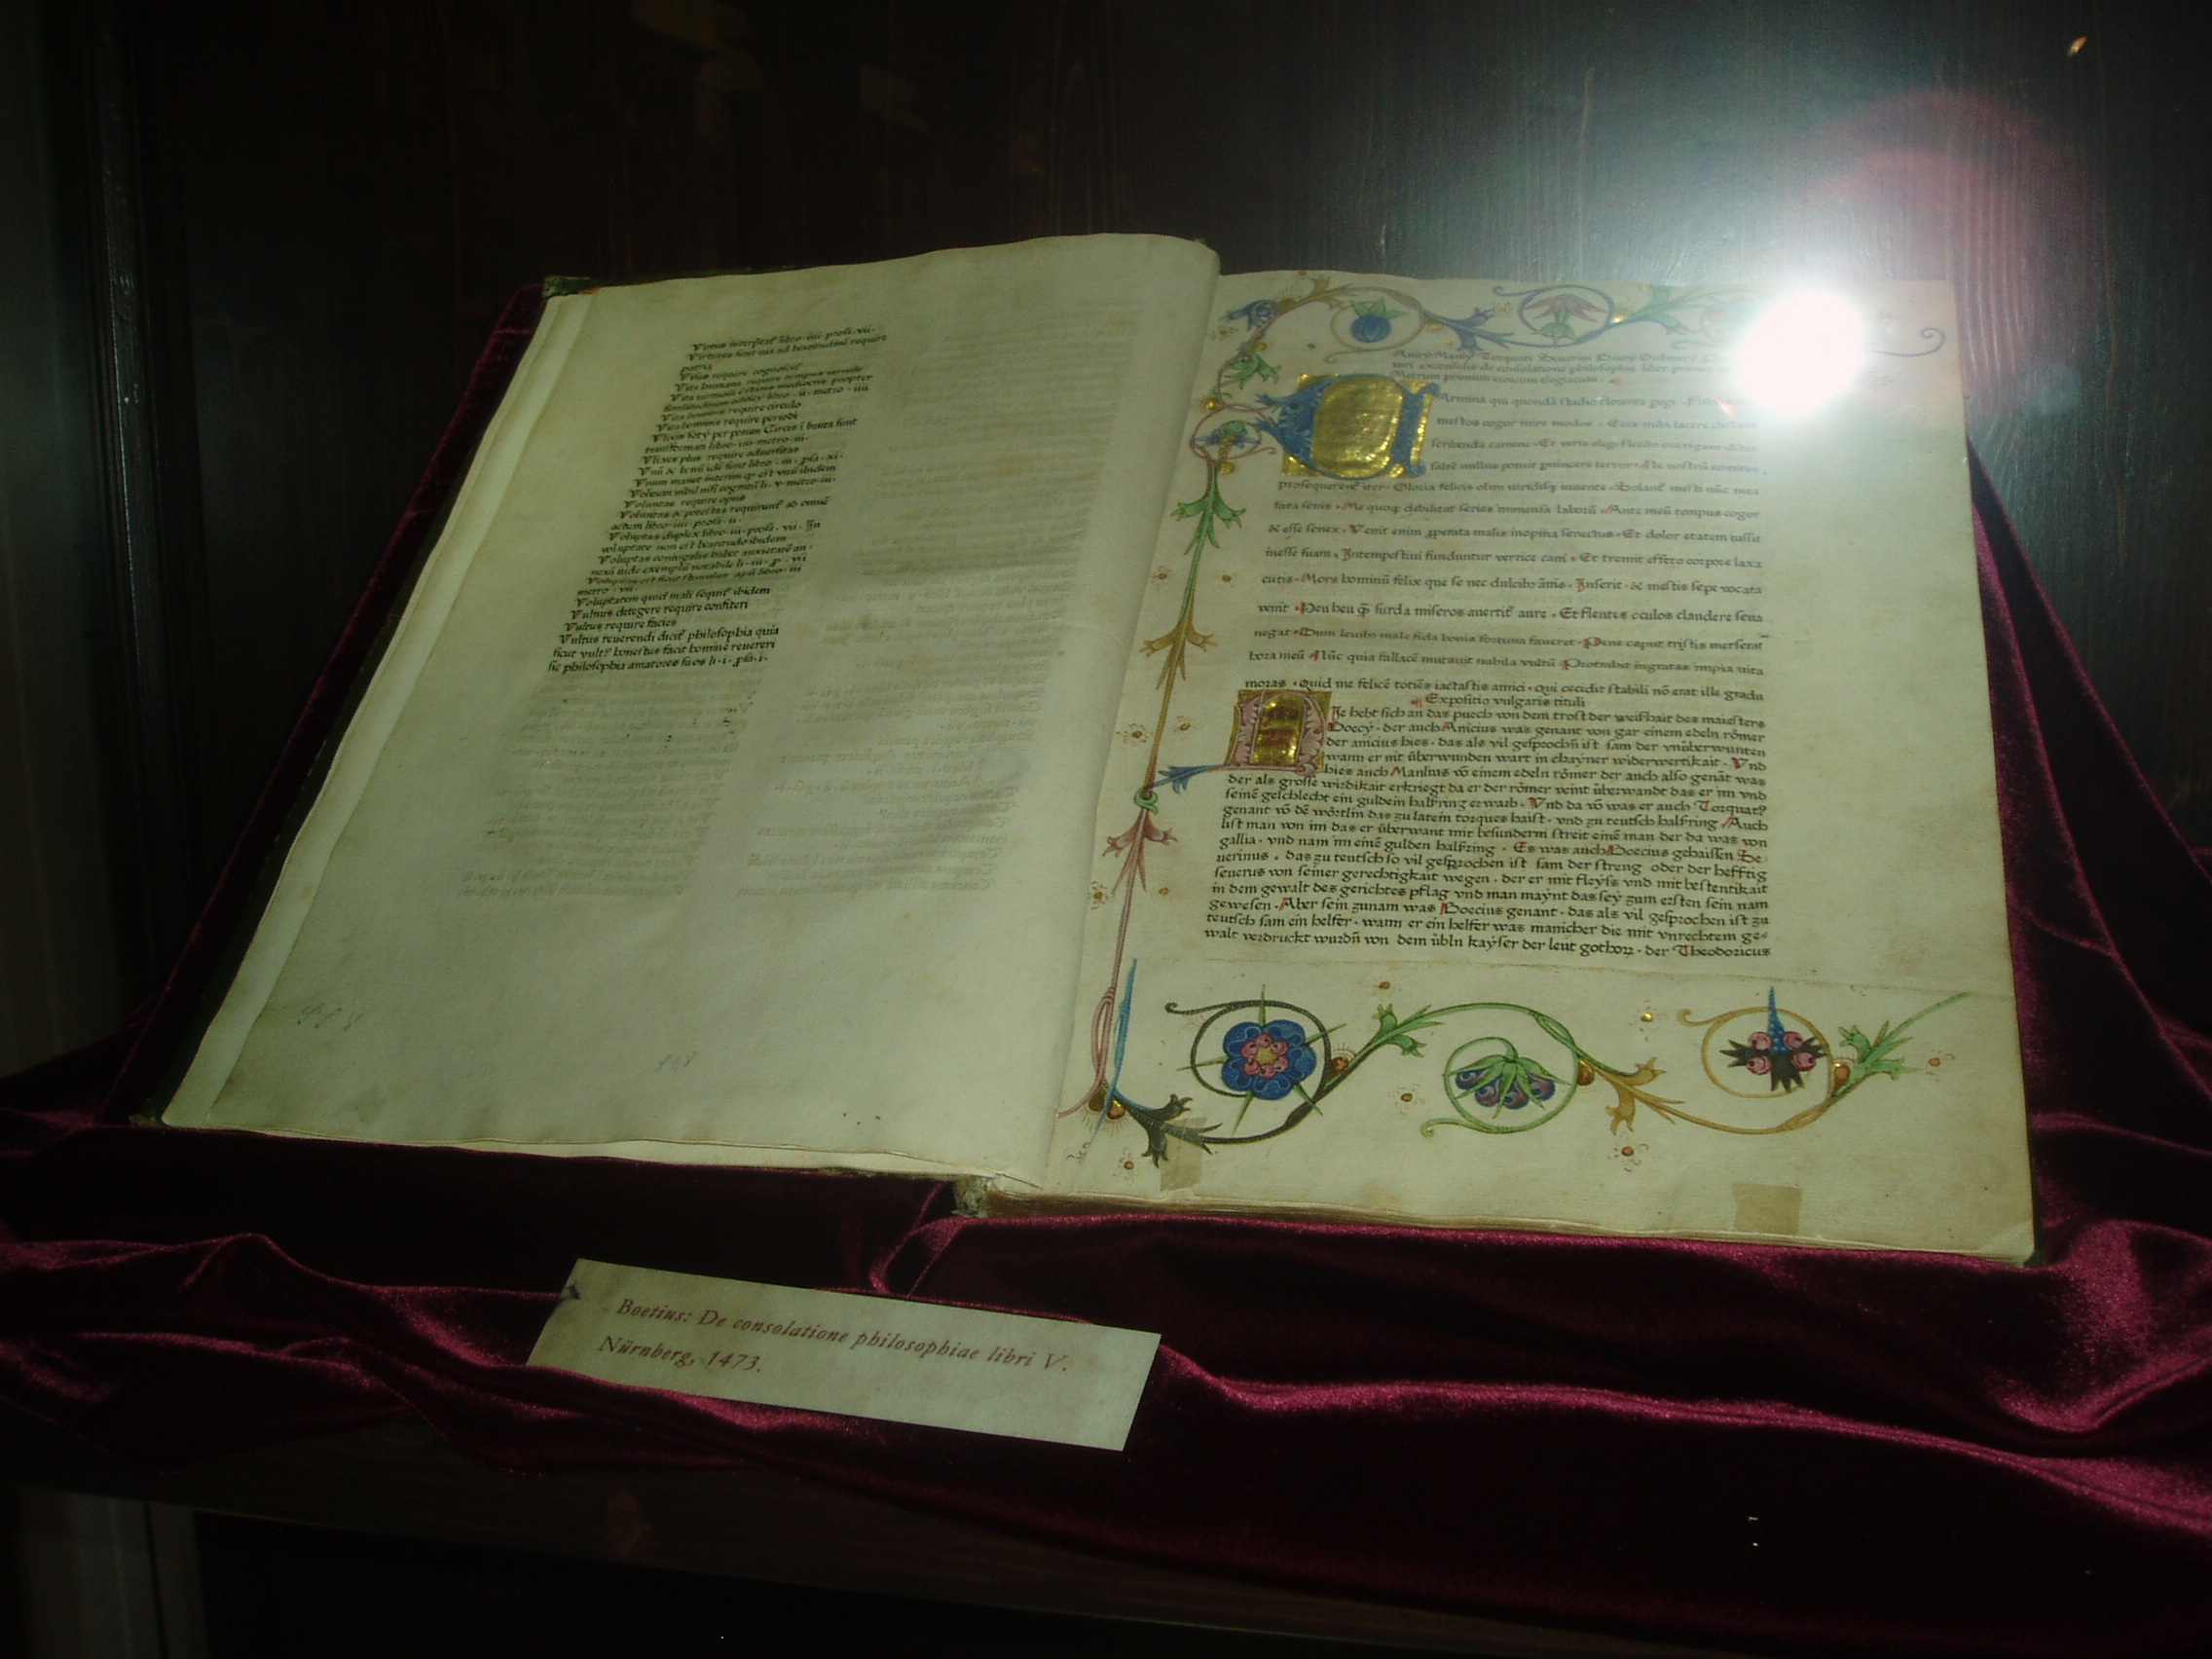 Virtus interp̃tat̃ libro · iiii · prosa · vii ·
Virtutes sunt via ad beatitudinē require
patria
Vita humana require tempus vernale
Vita hominis require circulo
Vita hominis require periodi
transformati libro · iiii · metro · iii ·
Vlixes plus require adversitas
Vnū & bonū idē sunt libro · iii · p̃sa · xi ·
Voluntas require opus
Voluntas & potestas requirunt̃ ad omnē
actum libro · iiii · prosa · ii ·
Voluptas duplex libro · iii · prosa · vii · In
voluptate non est beatitudo ibidem
Voluptas coniugalis habet anxietatē an ·
nexā unde exemplū notabile li · iii · p̃ · vii
metro · vii ·
Voluptatem quid mali sequit̃ ibidem
Vulnus detegere require confiteri
Vultus require facies
Vultus reverendi dicit̃ philosophia quia
sicut vult? honestus facit hominē revereri
sic philosophia amatores suos li · i · p̃sa · i ·
Metrum primum
Armina qui quondā studio florente pegi ·
mestos cogor inire modos · Ecce mihi lacere dictant
scribenda camene · Et veris elegi fletibo ora rigant
saltē nullus potuit pvincere terror · Ne nostrū comites
prosequerent̃ iter · Gloria felicis olim viridisq̃ iuvente · Solant̃ mesti nūc mea
fata senis · Me quoq̃ debilitat series immensa laborū · Ante meū tempus cogor
& esse senex · Venit enim p̱perata malis inopina senectus · Et dolor etatem iussit
inesse suam · Intempestivi funduntur vertice cani · Et tremit effeto corpore laxa
cutis · Mors hominū felix que se nec dulcibo ānis · Inserit · & mestis sepe vocata
venit · Heu heu q̃ surda miseros avertit̃ aure · Et flentes oculos claudere seva
negat · Dum levibo male fida bonis fortuna faveret · Pene caput tristis merserat
hora meū · Nūc quia fallacē mutavit nubila vultū · Protrahit ingratas impia vita
moras · Quid me felicē totiēs iactastis amici · Qui cecidit stabili nō erat ille gradu
Expositio vulgaris tituli
Ie hebt sich an das puech von dem trost der weishait des maiesters
Boecÿ · der auch Anicius was genant von gar einem edeln rȯmer
der anicius hies · das als vil gesprochñ ist sam der vnu̇berwunten
wann er nit u̇berwunden wart in chayner widerwertikait · Vnd
hies auch Manlius vō einem edeln rȯmer der auch also genāt was
der als grosse wirdikait erkriegt da er der rȯmer veint u̇berwandt das er im vnd
seinē geschlecht ein guldein halfring erwarb · Vnd da vō was er auch Torquat?
genant vō dē wȯrtlin das zu latein torques haist · vnd zu teutsch halfring · Auch
list man von im das er u̇berwant mit besunderm streit einē man der da was von
gallia · vnd nam im einē gulden halfzing · Es was auch Boecius gehaissen Se-
verinus · das zu teutsch so vil gesprochen ist sam der streng oder der hefftig
severus von seiner gerechtigkait wegen · der er mit fleyss vnd mit bestentikait
in dem gewalt des gerichtes pflag vnd man maynt das sey zum ersten sein nam
gewesen · Aber sein zunam was Boecius genant · das als vil gesprochen ist zu
teutsch sam ein helfer · wann er ein helfer was manicher die mit vnrechtem ge-
walt verdruckt wurdñ von dem u̇bln kayser der leut gothorꝝ · der Theodoricus
Boetius: De consolatione philosophiae libri V.
Nürnberg, 1473.